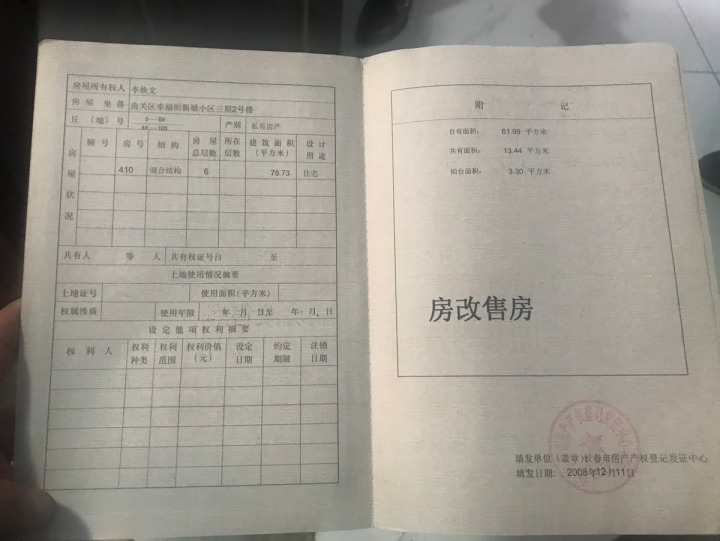 房屋所有权人 李焕文
房屋坐落 南关区幸福街新城小区三期2号楼
丘(地)号 产别 私有房产
幢号 房号 结构 房屋总层数 所在层数 建筑面积(平方米) 设计用途
房屋状况
410 混合结构 6 78.73 住宅
共有人 等 人 共有权证号自 至
土地使用情况摘要
土地证号 使用面积(平方米)
权属性质 使用年限 年 月 日至 年 月 日
设定他项权利摘要
权利人 权利种类 权利范围 权利价值(元) 设定日期 约定期限 注销日期
附 记
自有面积: 61.99 平方米
共有面积: 13.44 平方米
阳台面积: 3.30 平方米
房改售房
填发单位(盖章)长春市房产产权登记发证中心
填发日期: 2008年12月11日